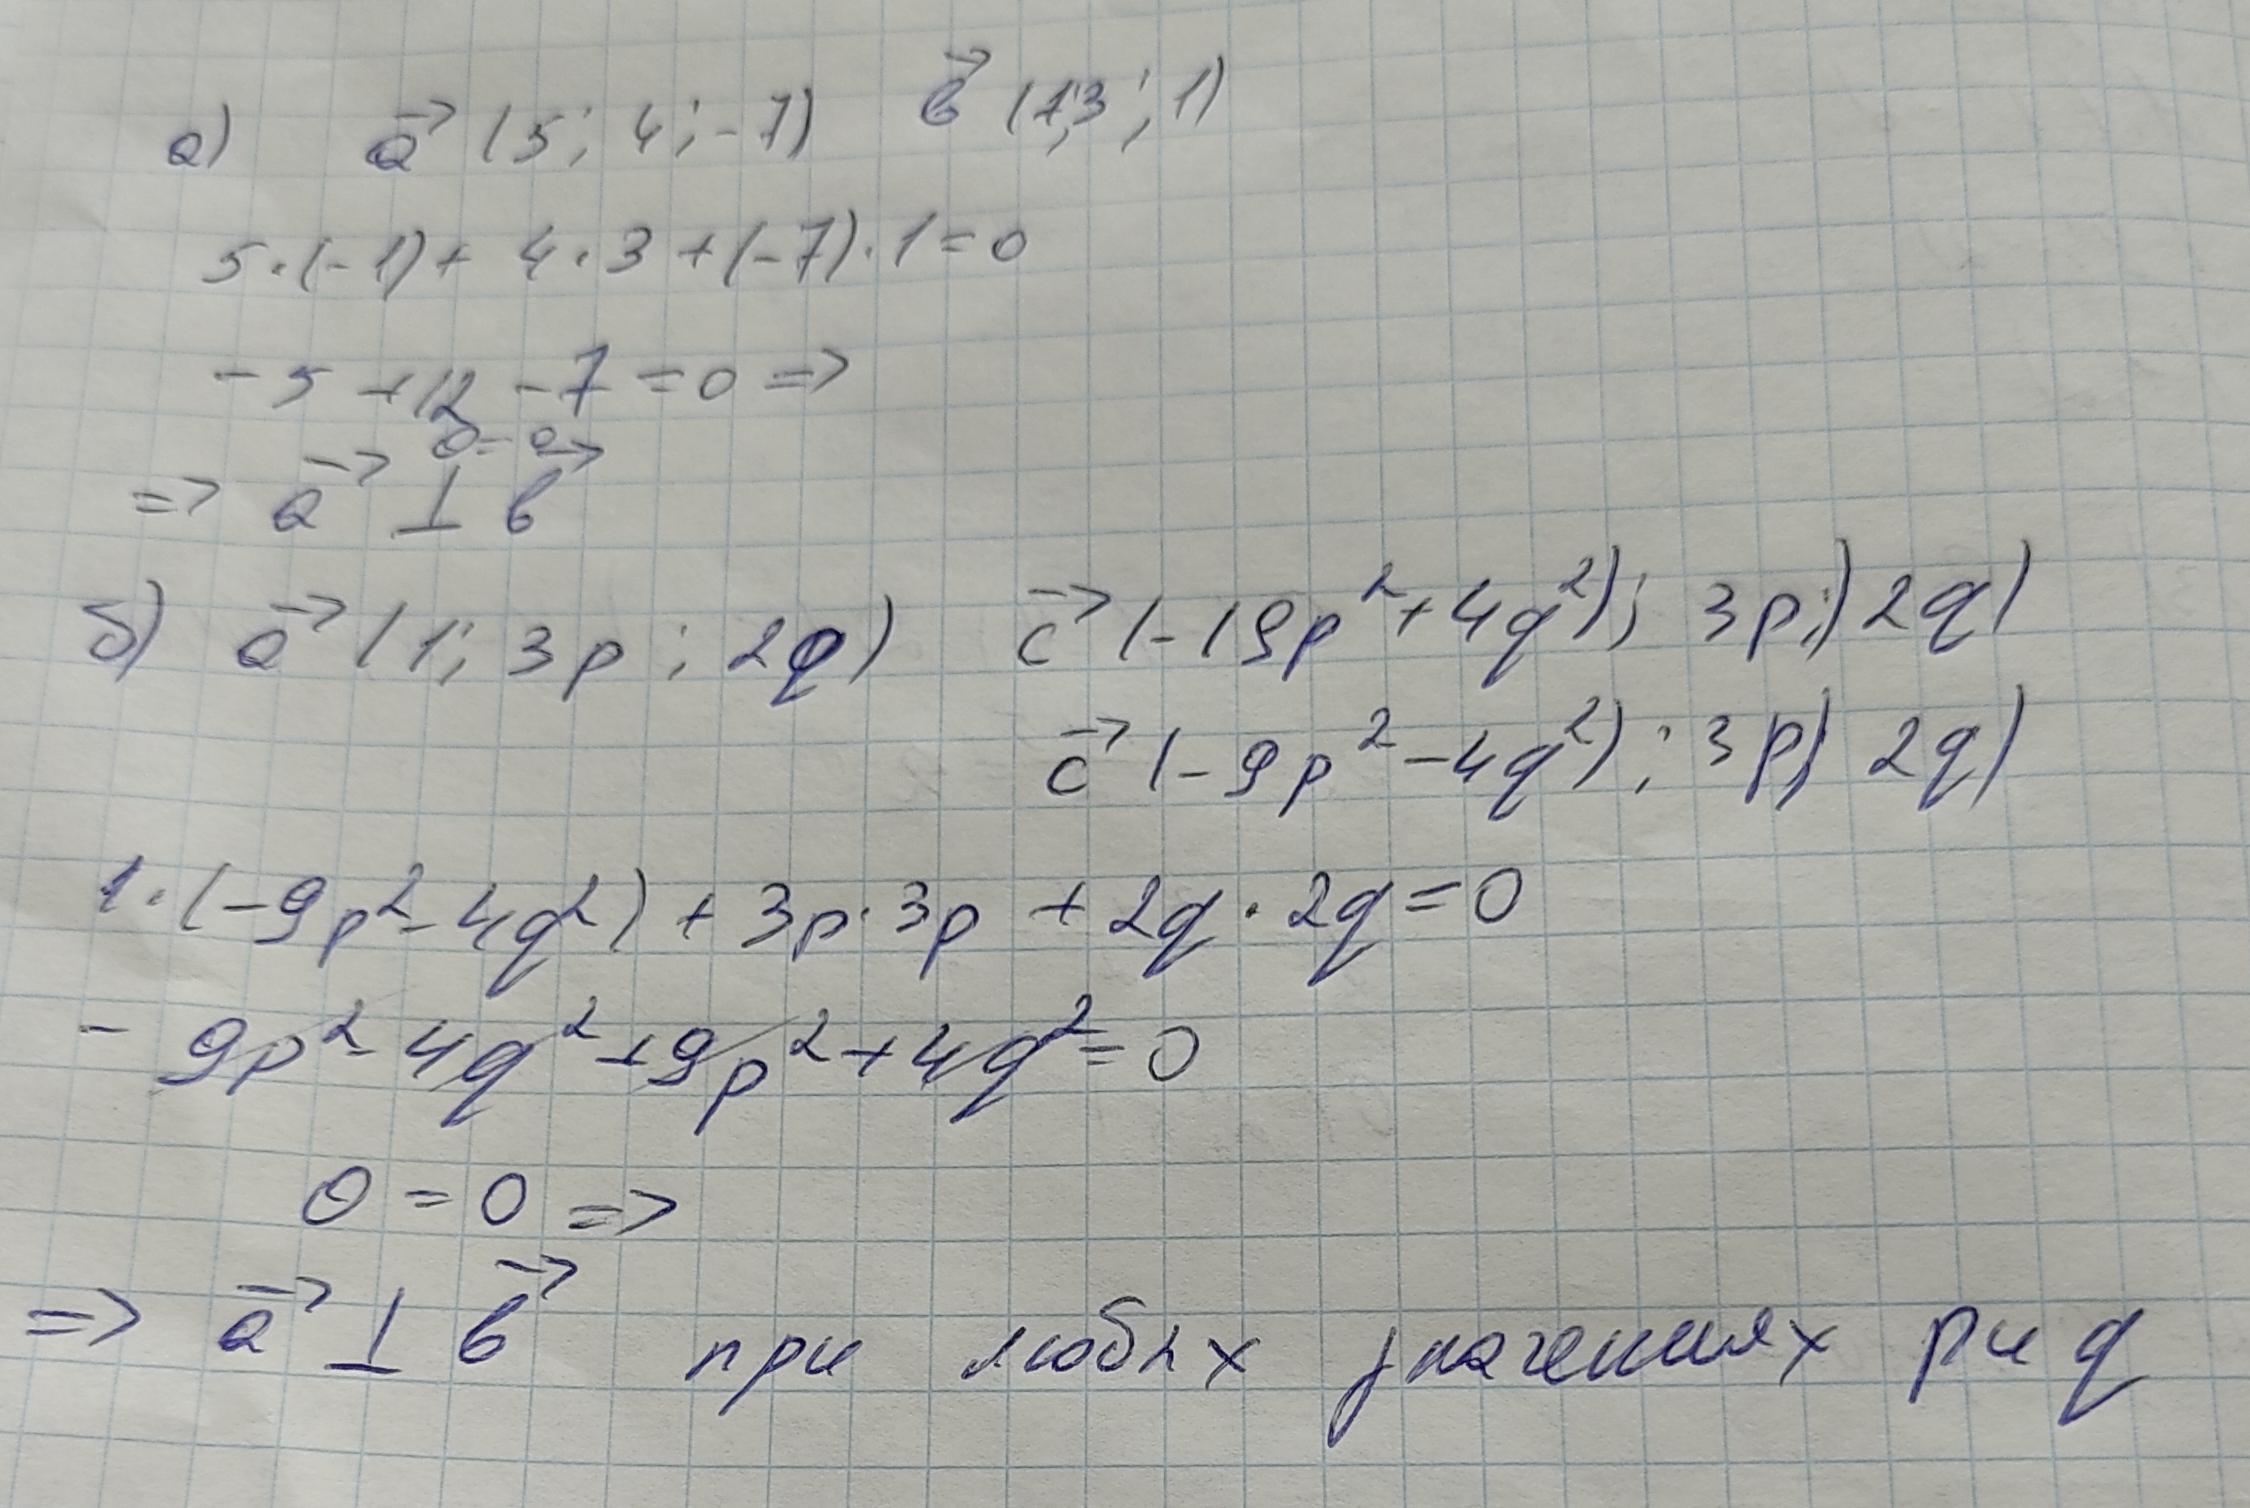 а) a⃗ (5; 4; -7) b⃗ (1;3; 1)
5·(-1)+ 4·3 +(-7)·1=0
-5 +12 -7 =0 =>
0=0
=> a⃗ ⊥ b⃗
б) a⃗ (1; 3p; 2q) c⃗ (-(9p²+4q²); 3p;) 2q)
c⃗ (-9p²-4q²); 3p) 2q)
1·(-9p²-4q²) + 3p·3p + 2q·2q=0
- 9p²-4q²+9p²+4q²=0
0=0 =>
=> a⃗ ⊥ b⃗ при любых значениях p и q